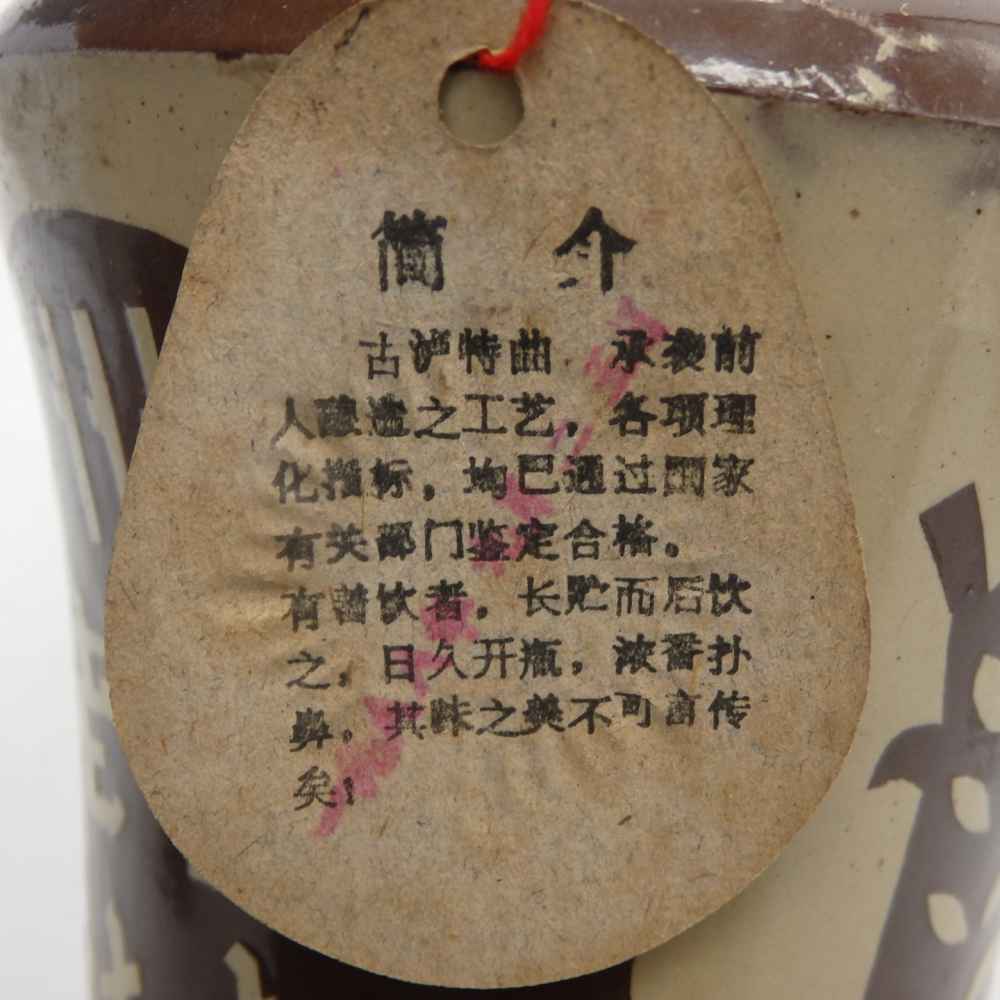 简 介
古泸特曲 承袭前
人酿造之工艺，各项理
化指标，均已通过国家
有关部门鉴定合格。
有善饮者，长贮而后饮
之，日久开瓶，浓香扑
鼻，其味之美不可言传
矣！